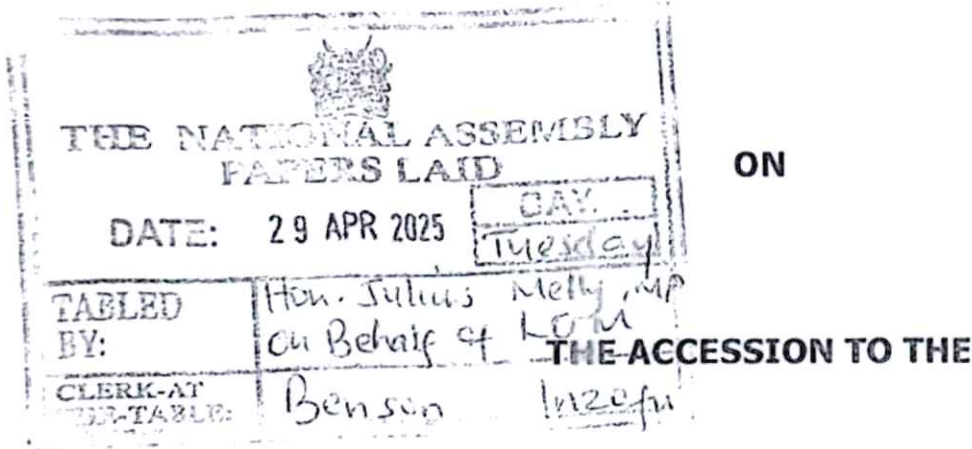 THE NATIONAL ASSEMBLY
PAPERS LAID
DATE: 29 APR 2025
DAY.
Tuesday
TABLED BY:
Hon. Julius Melly, MP
on Behalf of LOM
CLERK-AT
THE-TABLE:
Benson Inzofu
ON
THE ACCESSION TO THE